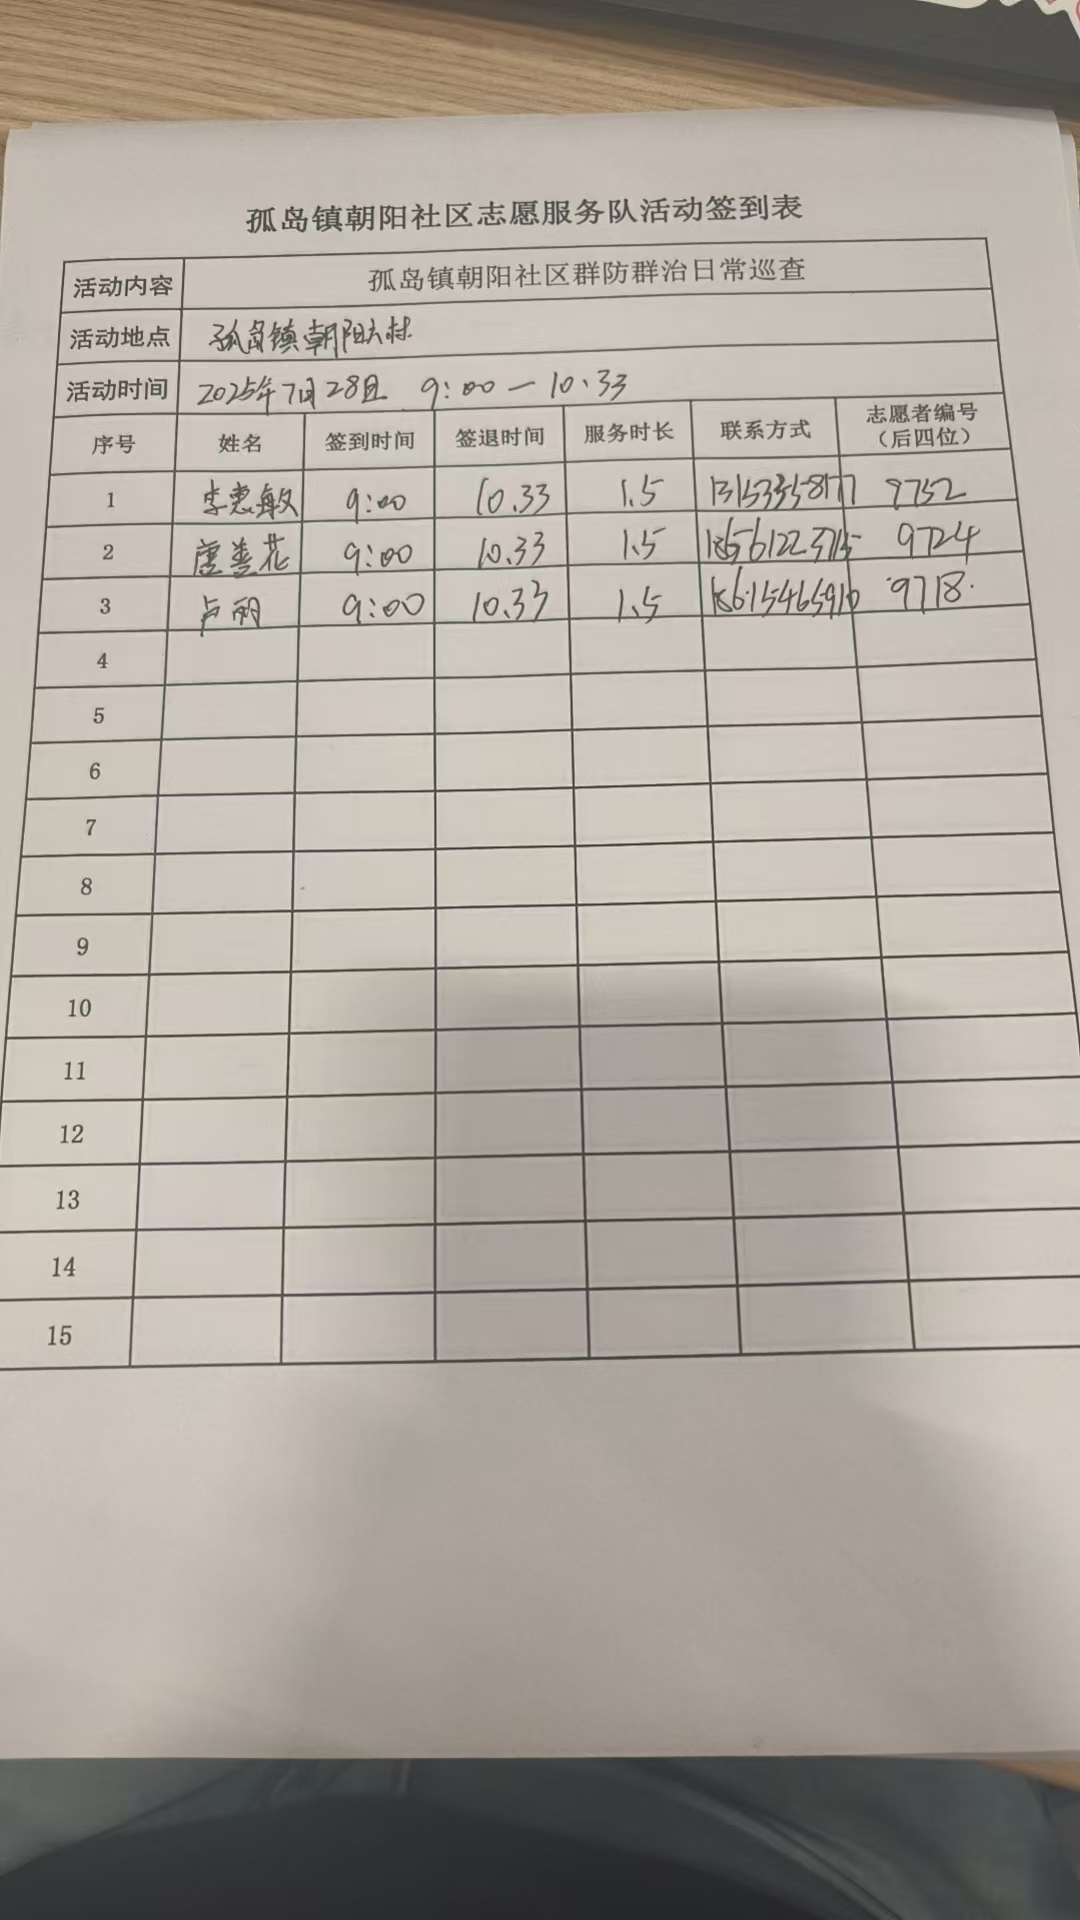 孤岛镇朝阳社区志愿服务队活动签到表
活动内容 孤岛镇朝阳社区群防群治日常巡查
活动地点 孤岛镇朝阳六村
活动时间 2025年7月28日 9:00—10.33
序号 姓名 签到时间 签退时间 服务时长 联系方式 志愿者编号（后四位）
1 李惠敏 9:00 10.33 1.5 13153358177 9752
2 唐善花 9:00 10.33 1.5 18656122375 9724
3 卢丽 9:00 10.33 1.5 18615465910 9718
4
5
6
7
8
9
10
11
12
13
14
15